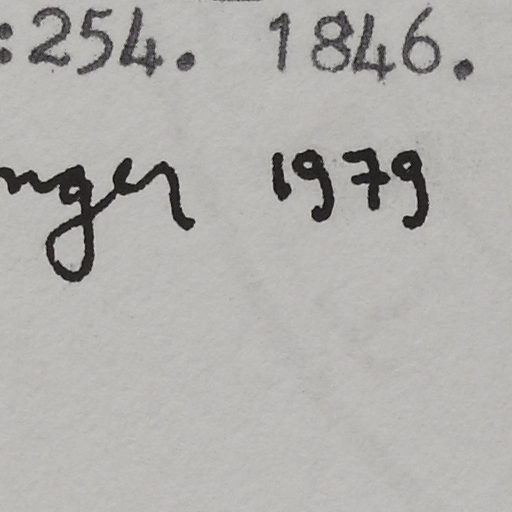 :254. 1846.
nger 1979